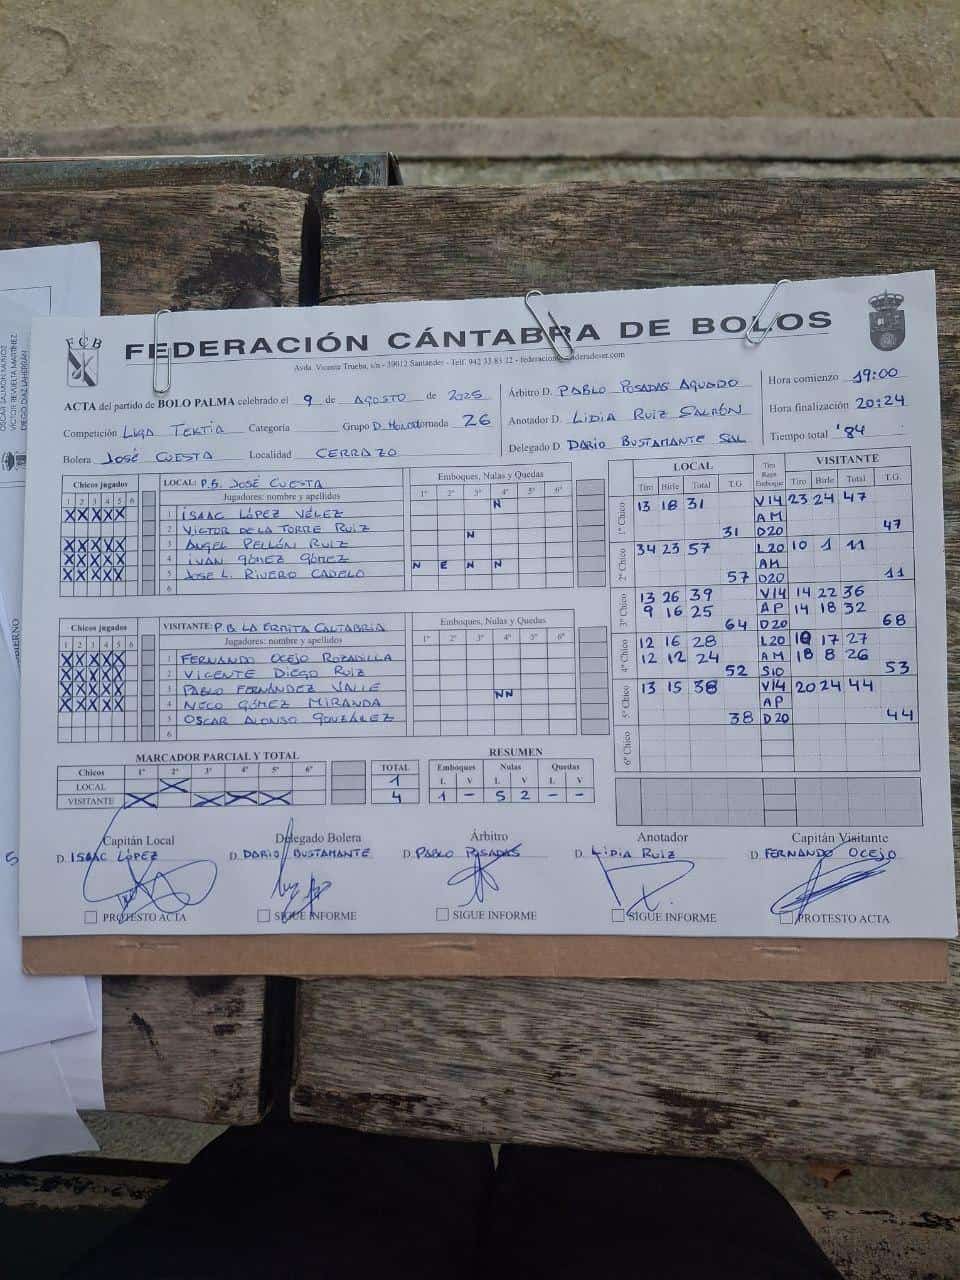 OSCAR SALMÓN MUÑOZ
VÍCTOR REVUELTA MARTÍNEZ
DIEGO DÍAZ LAHERRÁN
FCB
FEDERACIÓN CÁNTABRA DE BOLOS
Avda. Vicente Trueba, s/n - 39012 Santander - Telf. 942 33 83 12
ACTA del partido de BOLO PALMA celebrado el 9 de AGOSTO de 2025
Competición LIGA TERTIA Categoría Grupo Jornada 26
Bolera JOSÉ CUESTA Localidad CERRAZO
Árbitro D. PABLO POSADAS AGUADO
Anotador D. LIDIA RUIZ
Delegado D DARIO BUSTAMANTE SAL
Hora comienzo 19:00
Hora finalización 20:24
Tiempo total '84
Chicos jugados
1 2 3 4 5 6
X X X X X
X X X X X
X X X X X
X X X X X
LOCAL: P.B. JOSÉ CUESTA
Jugadores: nombre y apellidos
1 ISAAC LÓPEZ VÉLEZ
2 VICTOR DE LA TORRE RUIZ
3 ANGEL PELLÓN RUIZ
4 IVAN GÓMEZ GÓMEZ
5 JOSE L. RIVERO CADELO
6
Emboques, Nulas y Quedas
1º 2º 3º 4º 5º 6º
N
N
N E N N
Chicos jugados
1 2 3 4 5 6
X X X X X
X X X X X
X X X X X
X X X X X
VISITANTE: P.B. LA ERMITA CANTABRIA
Jugadores: nombre y apellidos
1 FERNANDO OCEJO ROZADILLA
2 VICENTE DIEGO RUIZ
3 PABLO FERNÁNDEZ VALLE
4 NECO GÓMEZ MIRANDA
5 OSCAR ALONSO GONZÁLEZ
6
Emboques, Nulas y Quedas
1º 2º 3º 4º 5º 6º
NN
LOCAL Tiro Raya Emboque VISITANTE
Tiro Birle Total T.G. Tiro Birle Total T.G.
1º Chico
13 18 31 V14 23 24 47
AM
31 D20 47
2º Chico
34 23 57 L20 10 1 11
AM
57 D20 11
3º Chico
13 26 39 V14 14 22 36
9 16 25 AP 14 18 32
64 D20 68
4º Chico
12 16 28 L20 10 17 27
12 12 24 AM 18 8 26
52 S10 53
5º Chico
13 15 38 V14 20 24 44
AP
38 D20 44
6º Chico
MARCADOR PARCIAL Y TOTAL
Chicos 1º 2º 3º 4º 5º 6º TOTAL
LOCAL X 1
VISITANTE X X X X 4
RESUMEN
Emboques Nulas Quedas
L V L V L V
1 - 5 2 - -
Capitán Local Delegado Bolera Árbitro Anotador Capitán Visitante
D. ISAAC LÓPEZ D. DARIO BUSTAMANTE D. PABLO POSADAS D. LIDIA RUIZ D. FERNANDO OCEJO
PROTESTO ACTA SIGUE INFORME SIGUE INFORME SIGUE INFORME PROTESTO ACTA